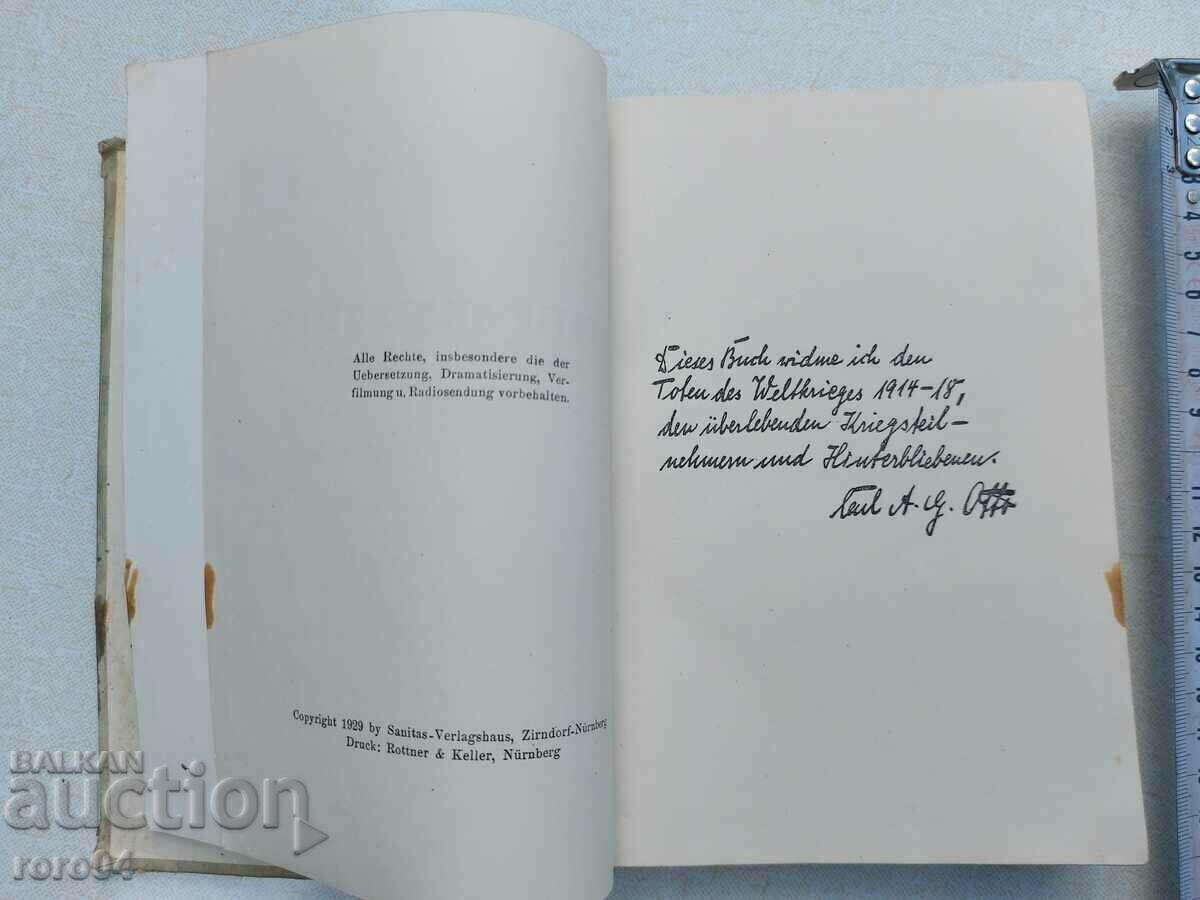 Alle Rechte, insbesondere die der
Uebersetzung, Dramatisierung, Ver-
filmung u. Radiosendung vorbehalten.
Copyright 1929 by Sanitas-Verlagshaus, Zirndorf-Nürnberg
Druck: Rottner & Keller, Nürnberg
Dieses Buch widme ich den
Toten des Weltkrieges 1914-18,
den überlebenden Kriegsteil-
nehmern und Hinterbliebenen.
A. G. Otto
BALKAN
auction
roro94
2
3
3
4
5
6
7
8
9
11
12
13
14